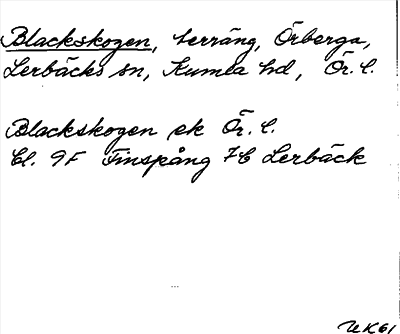 Blackskogen, terräng, Örberga,
Lerbäcks sn, Kumla hd, Ör. l.
Blackskogen ek Ör. l.
Bl. 9F Finspång 7b Lerbäck
UK61